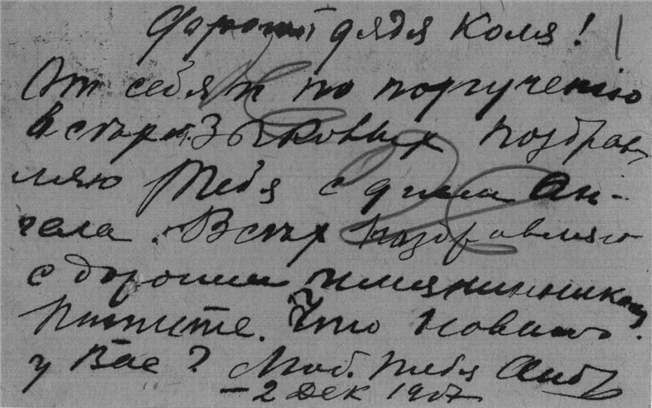 Дорогой дядя Коля!
От себя и по порученію
всѣхъ Зыковыхъ поздрав
ляю Тебя с днем Ан-
гела. Всѣх поздравляю
с дорогим имянинником
Пишите. Что новаго
у Вас? Люб. тебя
2 Дек 1907